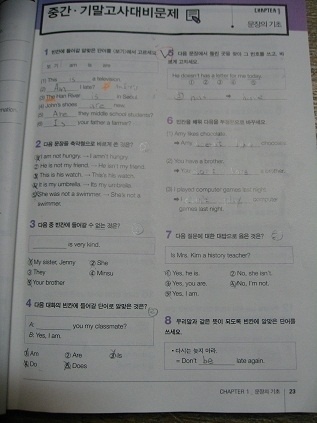 중간·기말고사대비문제
CHAPTER 1
문장의 기초
1 빈칸에 들어갈 알맞은 단어를 〈보기〉에서 고르세요.
am is are
(1) This is a television.
(2) Am I late?
(3) The Han River is in
(4) John's shoes are new.
(5) Are they middle school students?
(6) Is your father a farmer?
2 다음 문장을 축약형으로 바르게 쓴 것은?
① I am not hungry. → I amn't hungry.
② He is not my friend. → He isn't my friend.
③ This is his watch. → This's his watch.
④ It is my umbrella. → Its my umbrella.
⑤ She was not a swimmer. → She's not a
swimmer.
3 다음 중 빈칸에 들어갈 수 없는 것은?
is very kind.
① My sister, Jenny ② She
③ They ④ Minsu
⑤ Your brother
4 다음 대화의 빈칸에 들어갈 단어로 알맞은 것은?
A: you my classmate?
B: Yes, I am.
① Am ② Are ③ Is
④ Do ⑤ Does
5 다음 문장에서 틀린 곳을 찾아 그 번호를 쓰고, 바
르게 고치세요.
He doesn't has a letter for me today.
① ② ③ ④ ⑤
6
(1) Amy likes chocolate.
→ Amy chocolate.
(2) You have a brother.
→ You a brother.
(3) I played computer games last night.
→ I computer
games last night.
7 질문에 대한 대답으로 옳은 것은?
Is Mrs. Kim a history teacher?
① Yes, he is. ② No, she isn't.
③ Yes, you are. ④ No, I'm not.
⑤ Yes, I am.
8 우리말과 같은 뜻이 되도록 빈칸에 알맞은 단어를
쓰세요.
• 다시는 늦지 마라.
= Don't be late again.
CHAPTER 1 문장의 기초 23